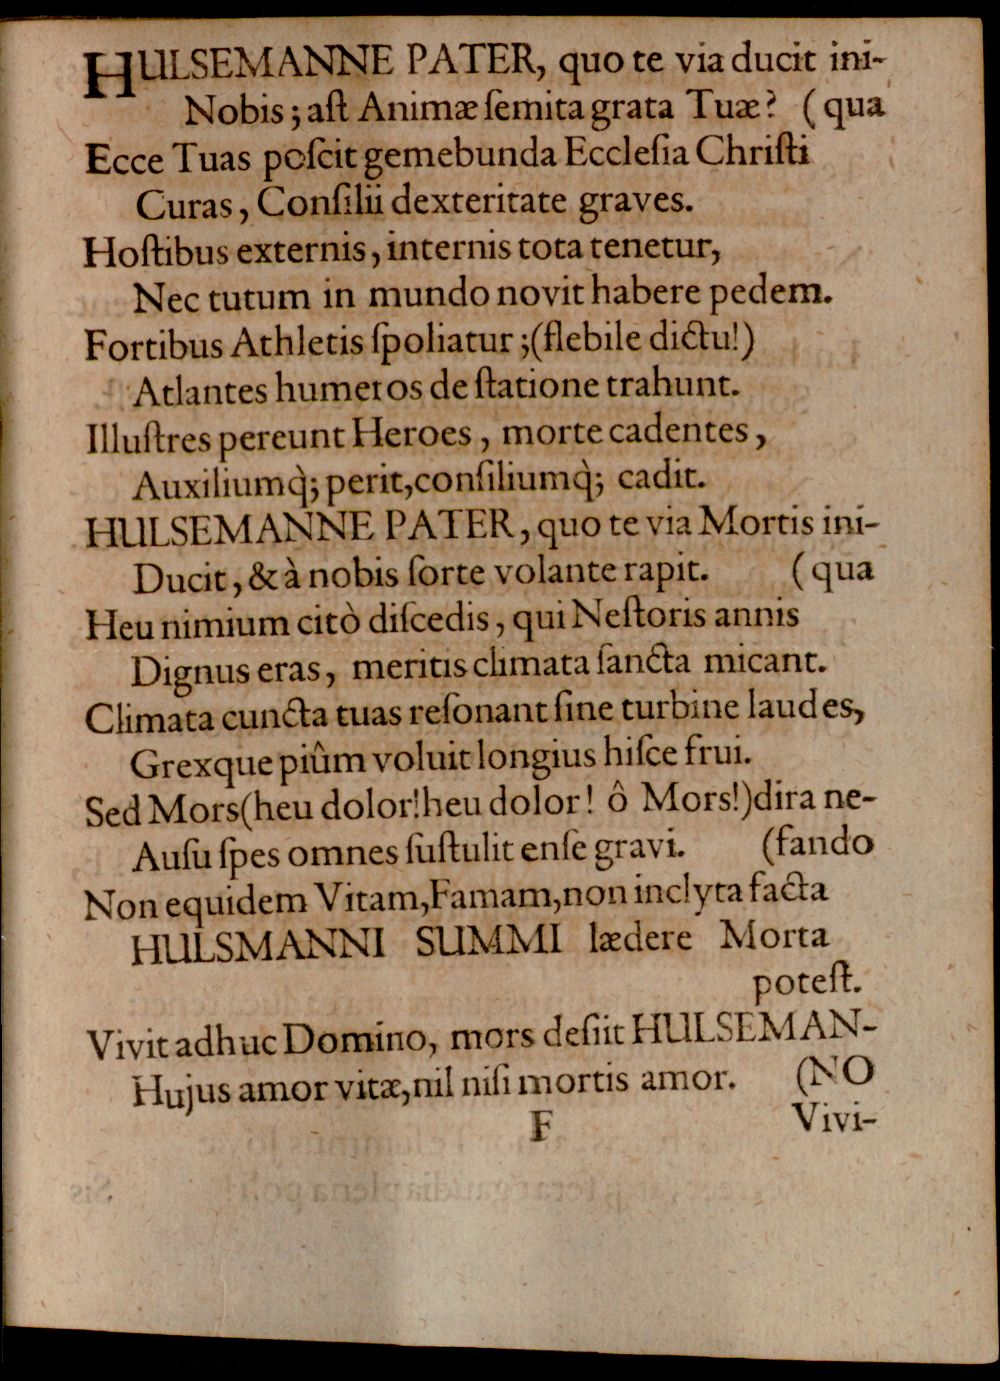 HULSEMANNE PATER, quo te via ducit ini-
Nobis; aſt Animæ ſemita grata Tuæ? (qua
Ecce Tuas poſcit gemebunda Eccleſia Chriſti
Curas, Conſilii dexteritate graves.
Hoſtibus externis, internis tota tenetur,
Nec tutum in mundo novit habere pedem.
Fortibus Athletis ſpoliatur; (flebile dictu!)
Atlantes humeros de ſtatione trahunt.
Illuſtres pereunt Heroes, morte cadentes,
Auxiliumq̀; perit, conſiliumq̀; cadit.
HULSEMANNE PATER, quo te via Mortis ini-
Ducit, & à nobis ſorte volante rapit. (qua
Heu nimium citò diſcedis, qui Neſtoris annis
Dignus eras, meritis climata ſancta micant.
Climata cuncta tuas reſonant ſine turbine laudes,
Grexque piûm voluit longius hiſce frui.
Sed Mors (heu dolor! heu dolor! ô Mors!) dira ne-
Auſu ſpes omnes ſuſtulit enſe gravi. (fando
Non equidem Vitam, Famam, non inclyta facta
HULSMANNI SUMMI lædere Morta
poteſt.
Vivit adhuc Domino, mors deſiit HULSEMAN-
Hujus amor vitæ, nil niſi mortis amor. (NO
F Vivi-